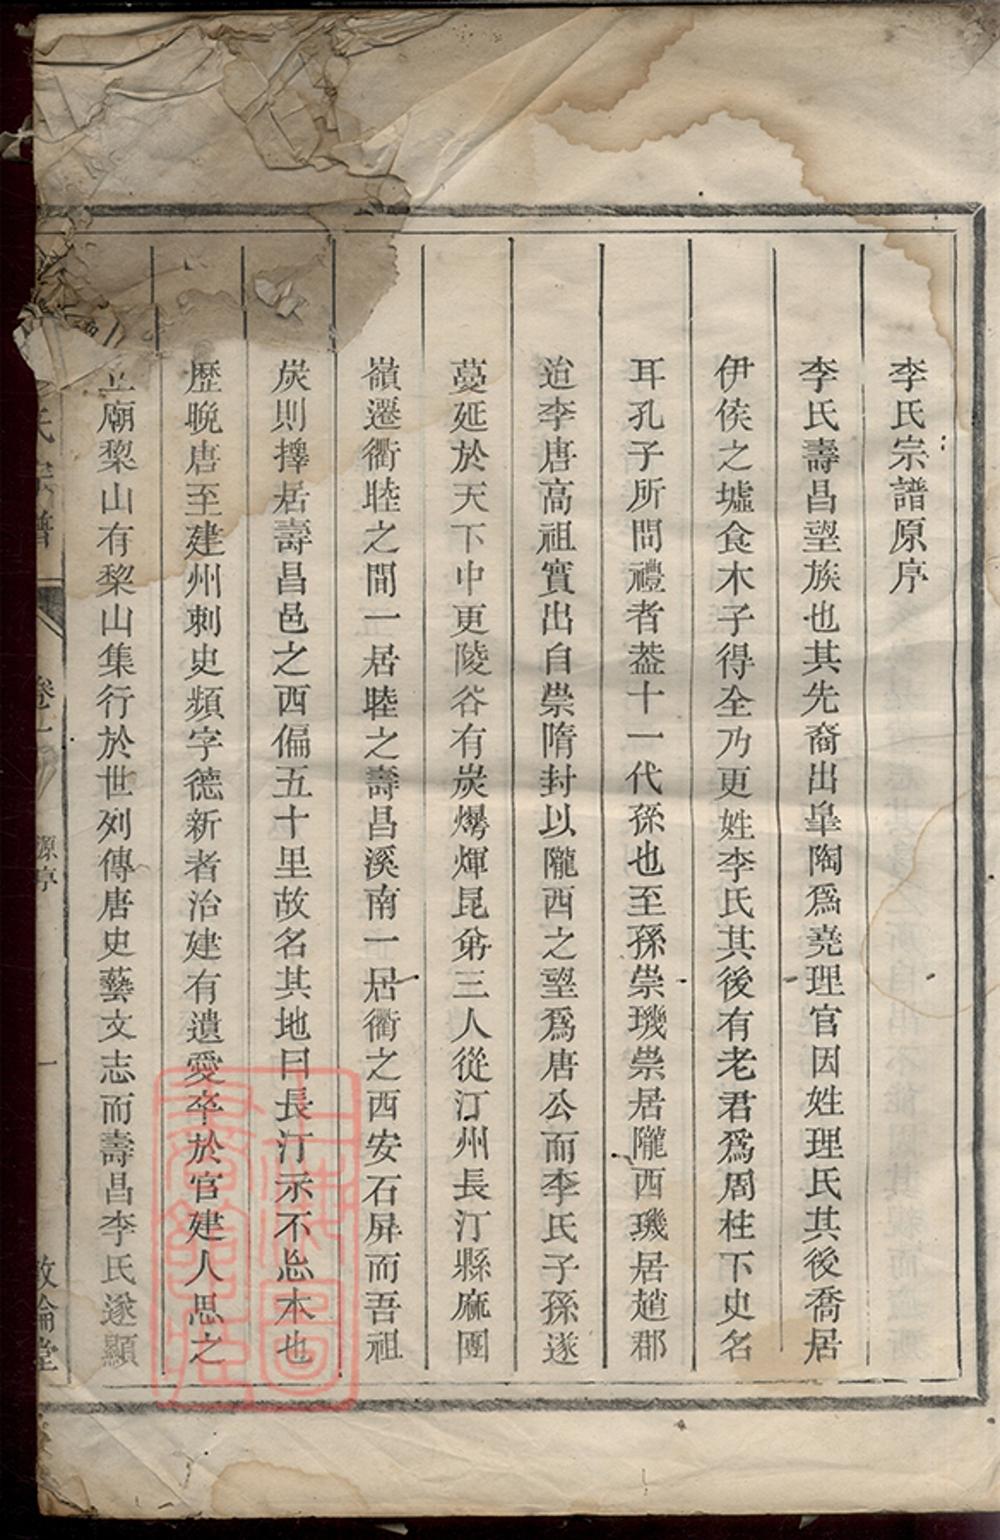 李氏宗譜原序
李氏壽昌望族也其先裔出臯陶爲堯理官因姓理氏其後喬居
伊侯之墟食木子得全乃更姓李氏其後有老君爲周柱下史名
耳孔子所問禮者葢十一代孫也至孫崇璣崇居隴西璣居趙郡
迨李唐高祖實出自祟隋封以隴西之望爲唐公而李氏子孫遂
蔓延於天下中更陵谷有炭爆煇昆弟三人從汀州長汀縣麻團
嶺遷衢睦之間一居睦之壽昌溪南一居衢之西安石屏而吾祖
炭則擇居壽昌邑之西偏五十里故名其地曰長汀示不忘本也
歷晚唐至建州刺史頻字德新者治建有遺愛卒於官建人思之
立廟棃山有棃山集行於世列傳唐史藝文志而壽昌李氏遂顯
氏宗譜 卷 源序 一 敘倫堂
上海圖書館藏